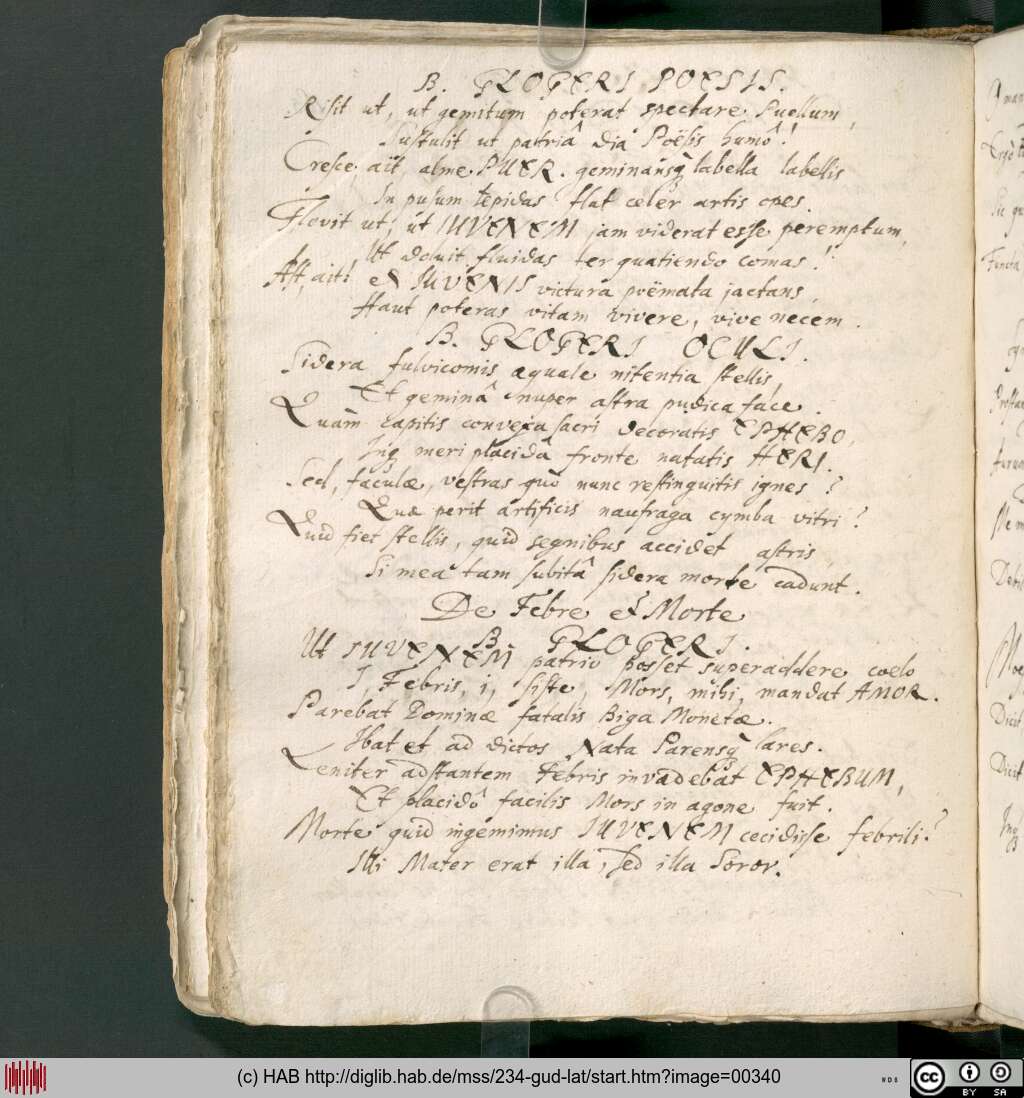 B. GLOGERI POESIS.
Risit ut, ut gemitum poterat spectare Puellum,
Sustulit ut patriâ dia Poësis humô!
Cresce ait, alme PUER. geminansq labella labellis
In pusum tepidas flat celer artis opes.
Flevit ut, ut IUVENEM jam viderat esse peremptum,
Ut doluit fluidas ter quatiendo comas!
Ast, ait! et IUVENIS victura poëmata jactans,
Haut poteras vitam vivere, vive necem.
B. GLOGERI OCULI.
Sidera fulvicomis æquale nitentia stellis,
Et geminâ nuper astra pudica face.
Quàm capitis convexa sacri decoratis EPHEBO,
Inq meri placidâ fronte natatis HERI.
Sed, faculæ, vestras quò nunc restinguitis ignes?
Quæ perit artificis naufraga cymba vitri?
Quid fiet stellis, quid segnibus accidet astris,
Si mea tam subitâ sidera morte cadunt.
De Febre et Morte
B. GLOGERI.
Ut IUVENEM patrio posset superaddere coelo
I, Febris, i, siste, Mors, mihi, mandat AMOR.
Parebat Dominæ fatalis Biga Monetæ.
Ibat et ad dictos Nata Parensq lares.
Leniter adstantem Febris invadebat EPHEBUM,
Et placidô facilis Mors in agone fuit.
Morte quid ingemimus IUVENEM cecidisse febrili?
Illi Mater erat illa, sed illa Soror.
(c) HAB http://diglib.hab.de/mss/234-gud-lat/start.htm?image=00340
cc BY SA